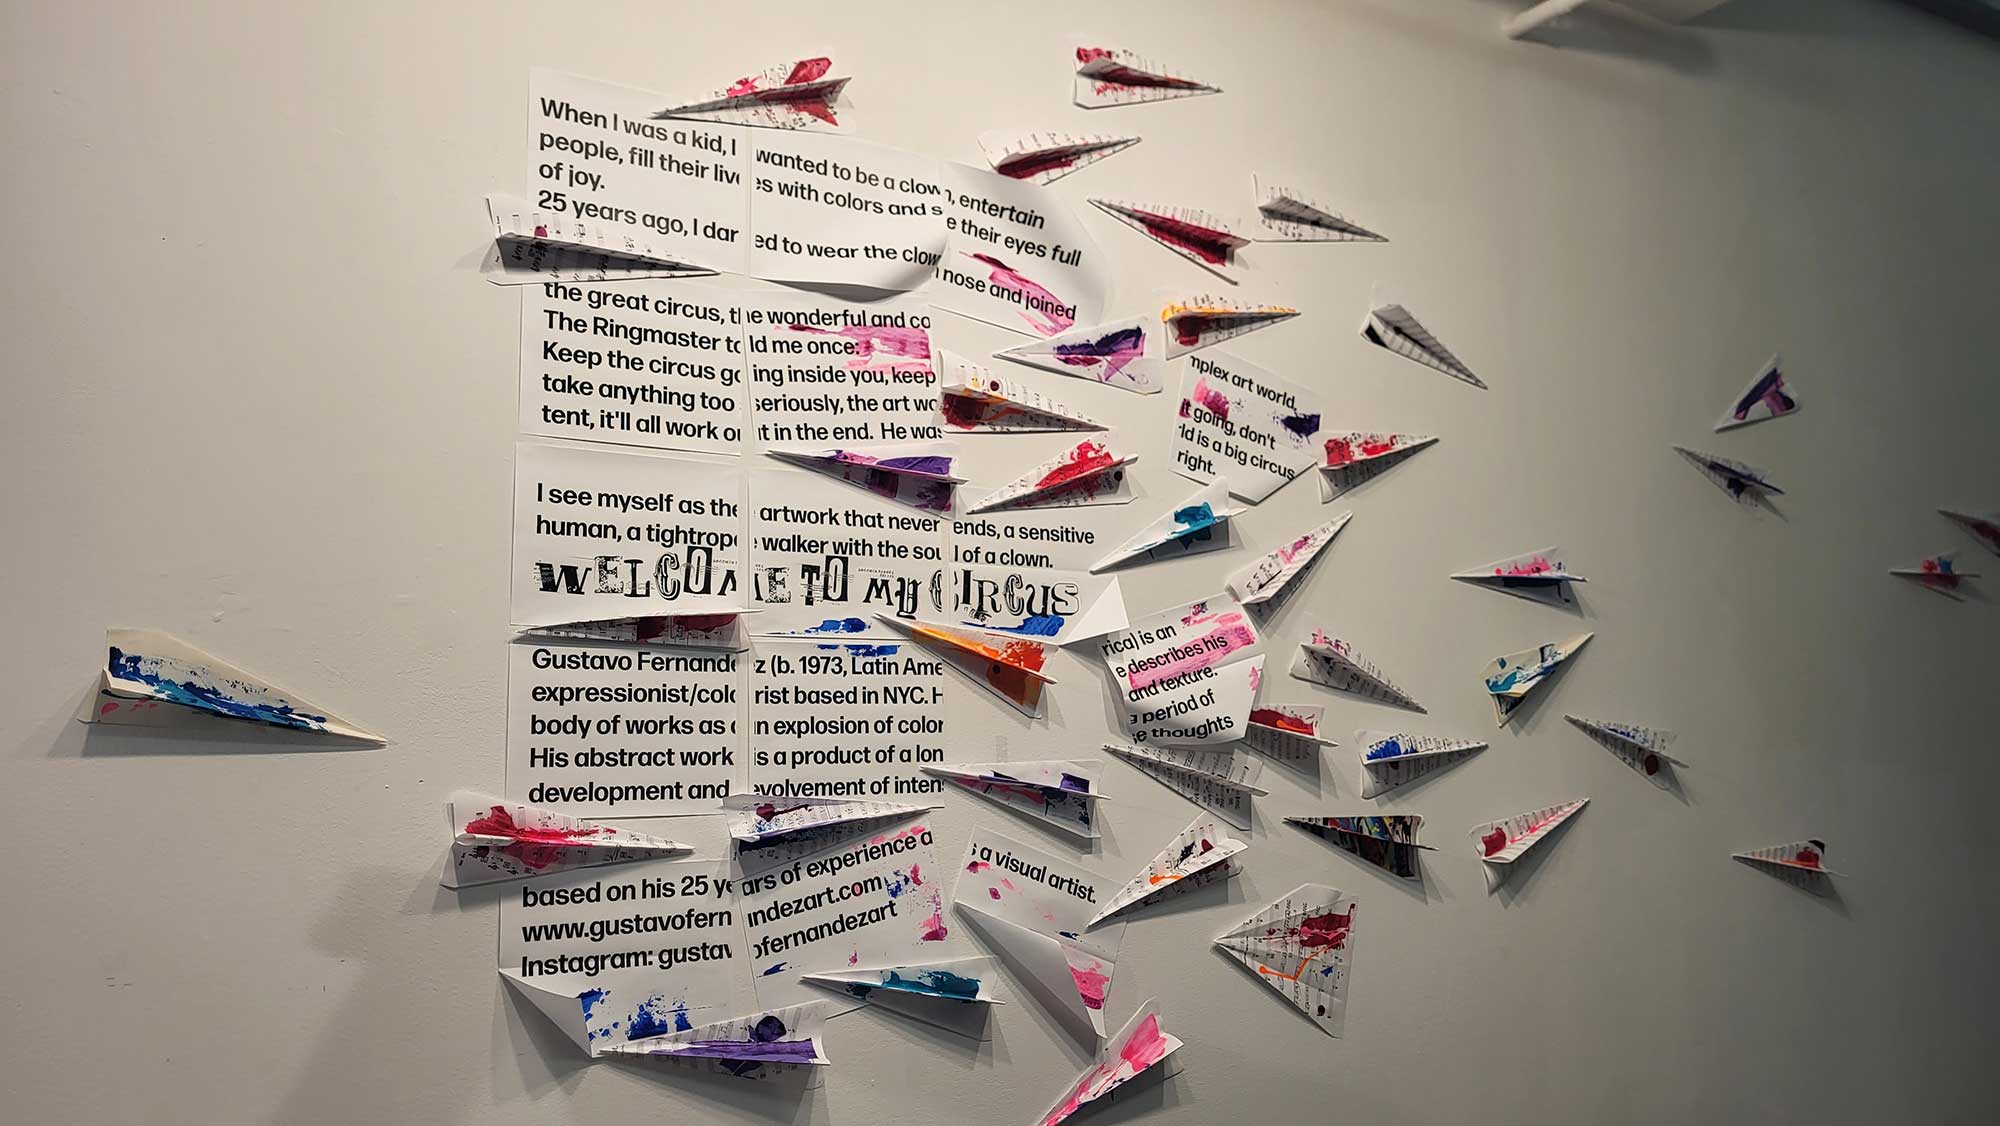 When I was a kid, I wanted to be a clown, entertain
people, fill their lives with colors and see their eyes full
of joy.
25 years ago, I dared to wear the clown nose and joined
the great circus, the wonderful and complex art world.
The Ringmaster told me once:
Keep the circus going inside you, keep it going, don't
take anything too seriously, the art world is a big circus
tent, it'll all work out in the end. He was right.
I see myself as the artwork that never ends, a sensitive
human, a tightrope walker with the soul of a clown.
WELCOME TO MY CIRCUS
Gustavo Fernandez (b. 1973, Latin America) is an
expressionist/colorist based in NYC. He describes his
body of works as an explosion of color and texture.
His abstract work is a product of a long period of
development and evolvement of intense thoughts
based on his 25 years of experience as a visual artist.
www.gustavofernandezart.com
Instagram: gustavofernandezart